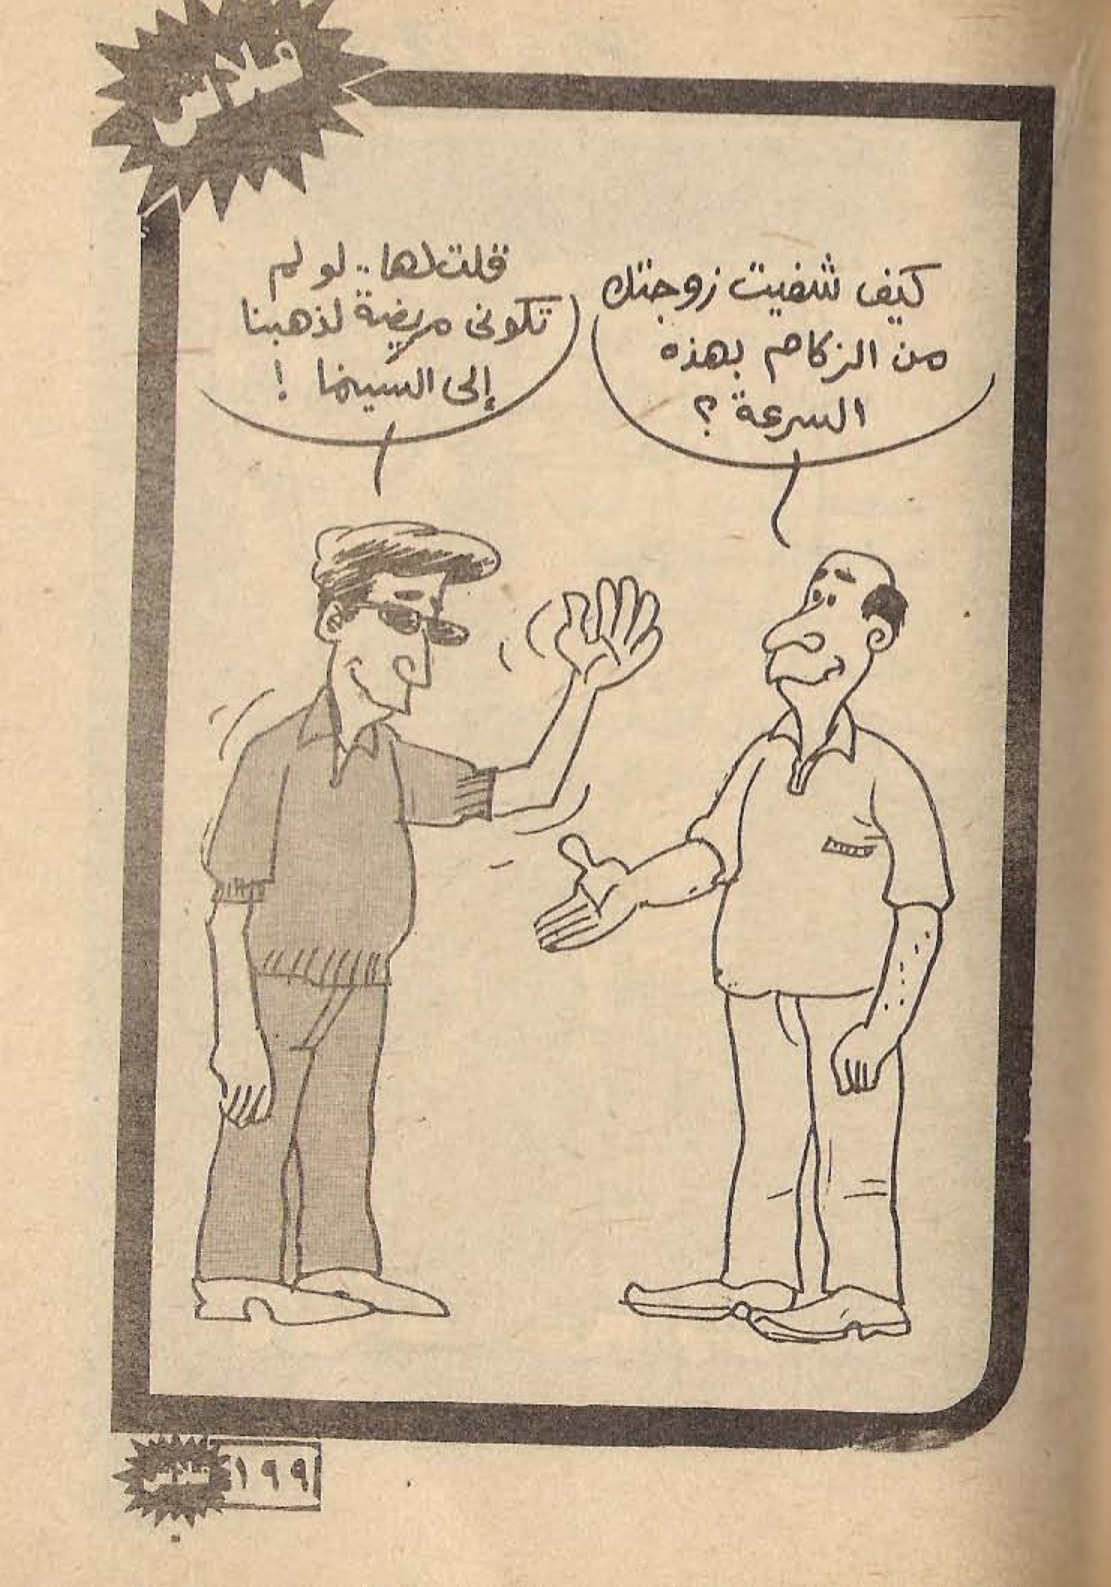 فلاش
كيف شفيت زوجتك
من الزكام بهذه
السرعة ؟
قلت لها .. لو لم
تكونى مريضة لذهبنا
إلى السينما !
فلاش
١٩٩